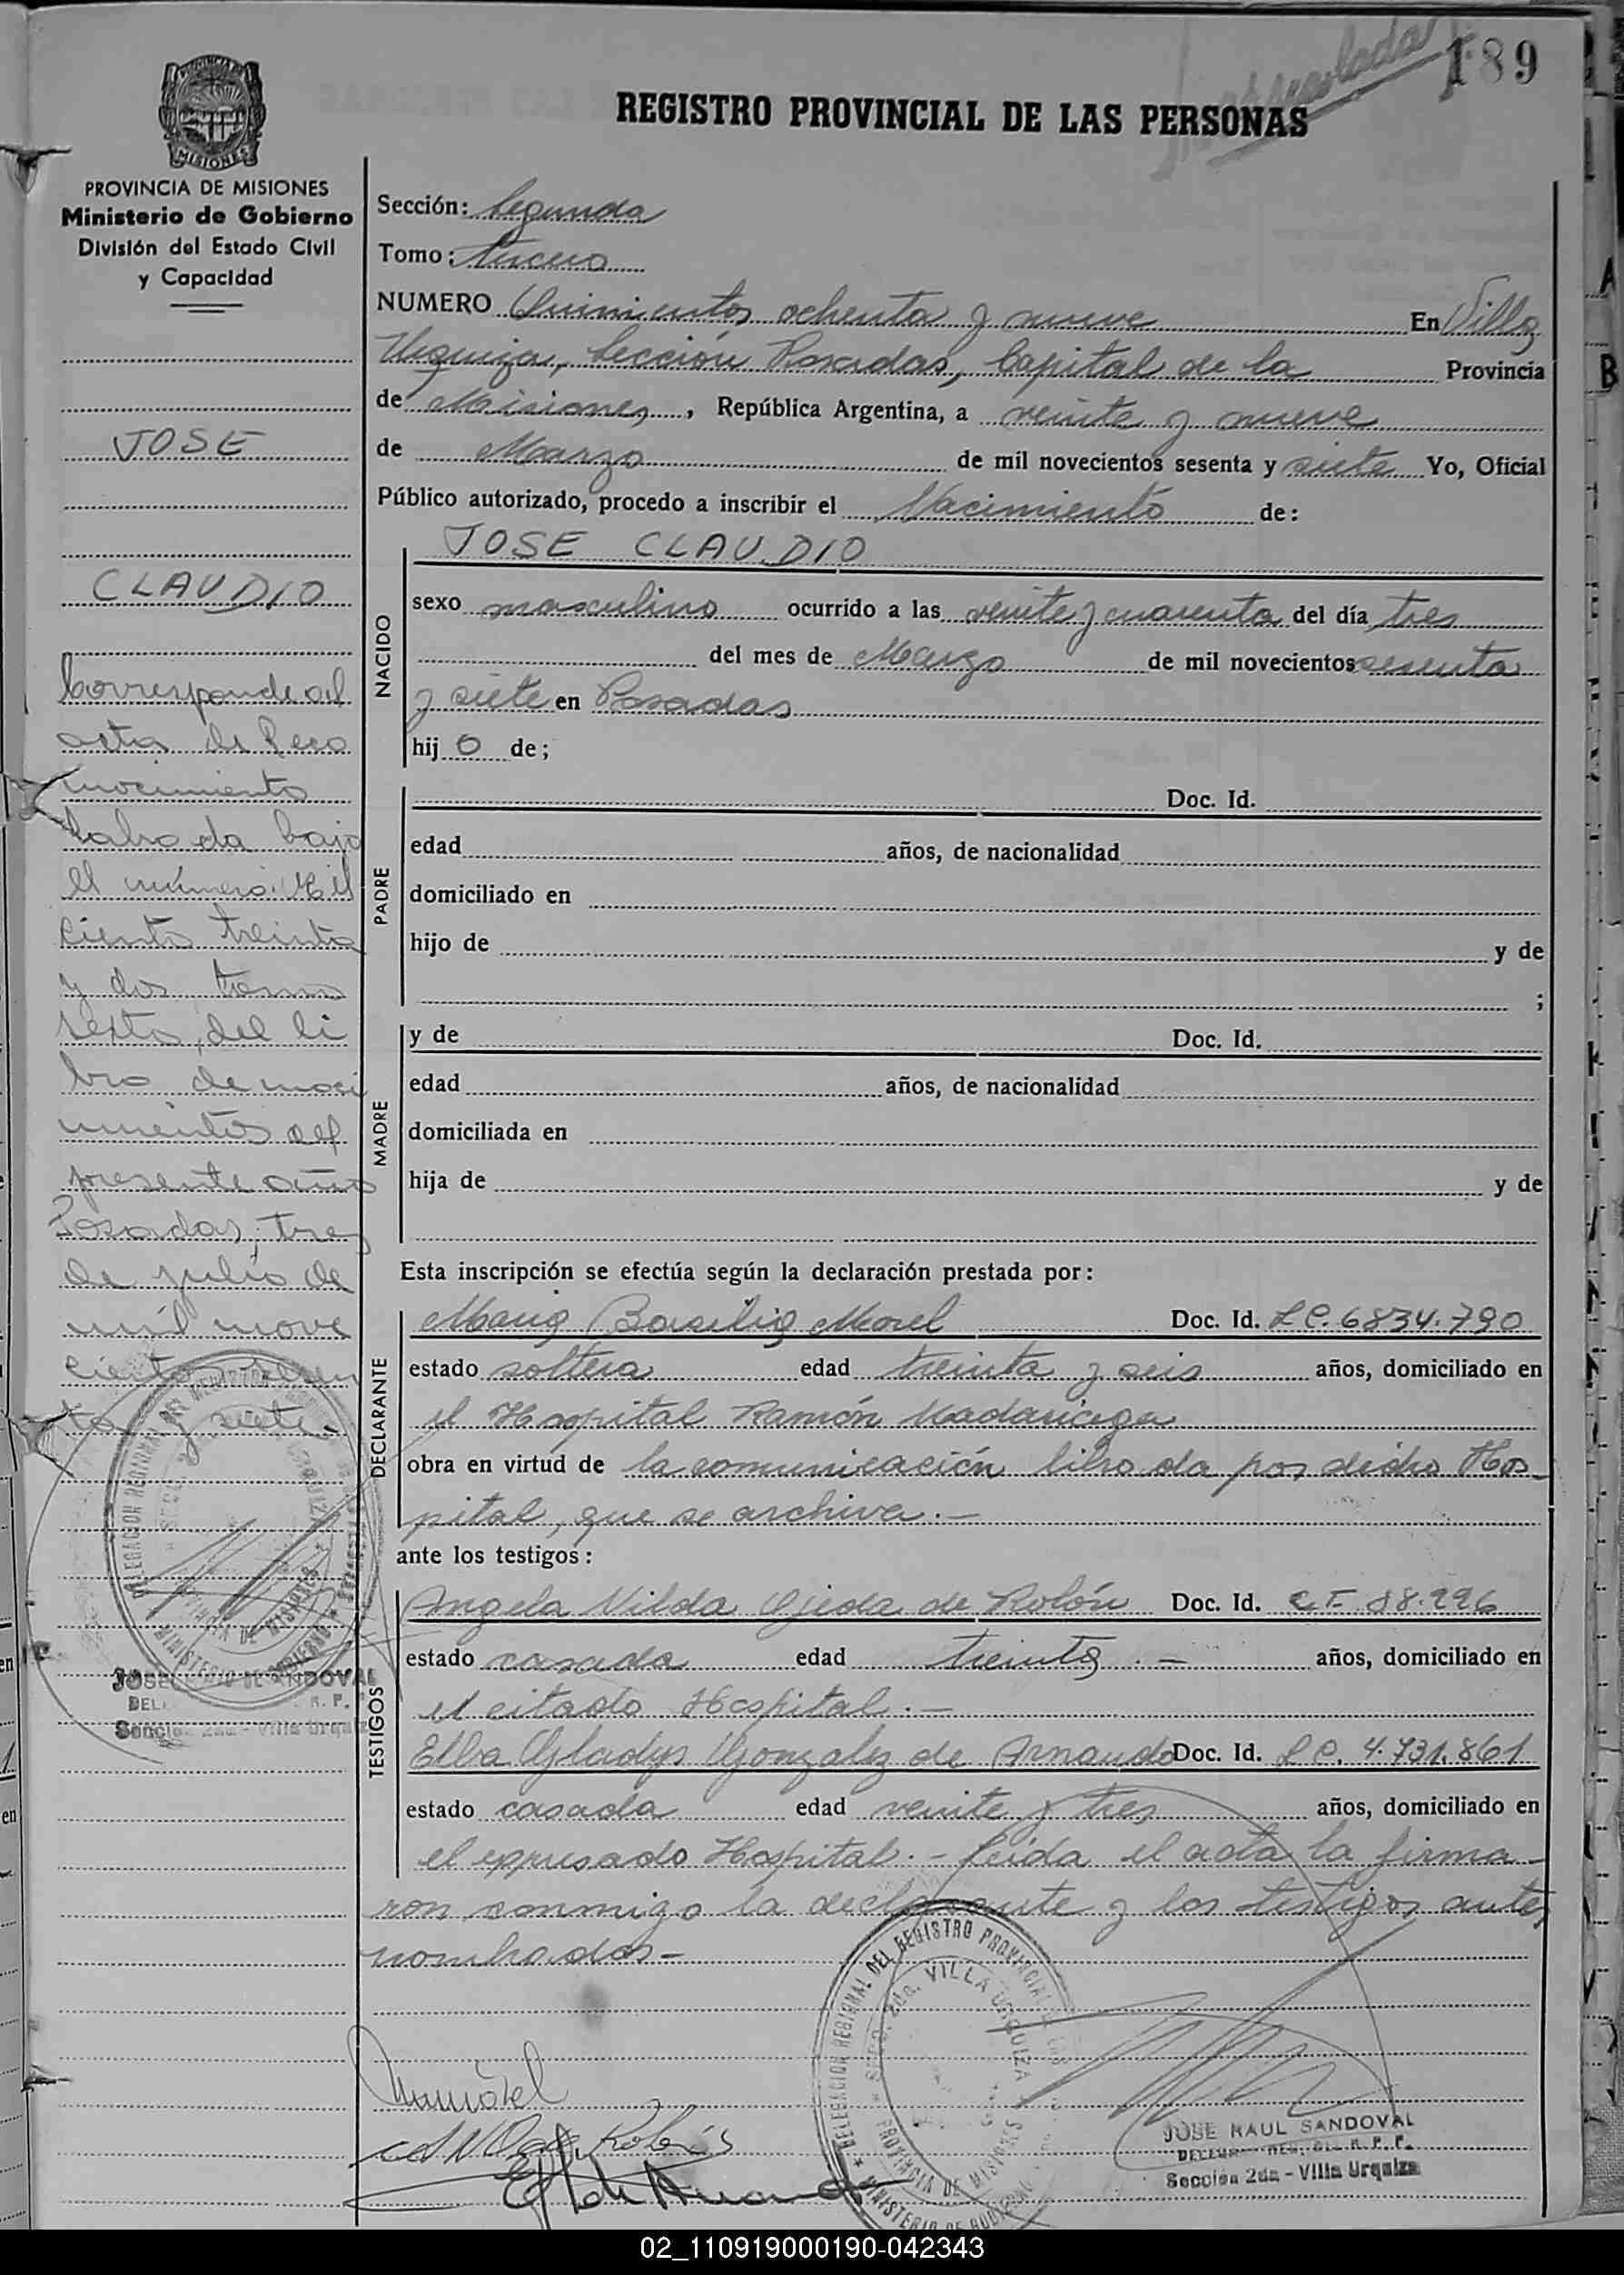 189
REGISTRO PROVINCIAL DE LAS PERSONAS
MISIONES
PROVINCIA DE MISIONES
Ministerio de Gobierno
División del Estado Civil
y Capacidad
JOSE
CLAUDIO
Corresponde al
acta de Reco
nocimiento
labrada bajo
el número Mil
ciento treinta
y dos tomo
sexto, del li
bro de naci
mientos del
presente año
Posadas, tres
de julio de
mil nove
cientos sesen
ta y siete.-
Sección: Segunda
Tomo: tercero
NUMERO Quinientos ochenta y nueve En Villa
Urquiza, Sección Posadas, Capital de la Provincia
de Misiones, República Argentina, a veinte y nueve
de Marzo de mil novecientos sesenta y siete Yo, Oficial
Público autorizado, procedo a inscribir el Nacimiento de:
JOSE CLAUDIO
NACIDO
sexo masculino ocurrido a las veinte y cuarenta del día tres
del mes de Marzo de mil novecientos sesenta
y siete en Posadas
hij o de;
PADRE
Doc. Id.
edad años, de nacionalidad
domiciliado en
hijo de y de
;
MADRE
y de Doc. Id.
edad años, de nacionalidad
domiciliada en
hija de y de
Esta inscripción se efectúa según la declaración prestada por:
DECLARANTE
Basilia Morel Doc. Id. L.C. 6834.790
estado soltera edad treinta y seis años, domiciliado en
el Hospital Ramón Madariaga
obra en virtud de la comunicación librada por dicho Hos-
pital, que se archiva.-
ante los testigos:
TESTIGOS
Angela Nilda Ojeda de Rolón Doc. Id. 88.996
estado casada edad treinta.- años, domiciliado en
el citado Hospital.-
Elba Gladys Gonzalez de Arnaudo Doc. Id. L.C. 4.731.861
estado casada edad veinte y tres años, domiciliado en
el expresado Hospital.- Leída el acta la firma-
ron conmigo la declarante y los testigos antes
nombrados-
DELEGACION REGIONAL DEL REGISTRO PROVINCIAL DE LAS
SECC. 2da. VILLA URQUIZA
PROVINCIA DE MISIONES
MINISTERIO DE GOBIERNO
JOSE RAUL SANDOVAL
Sección 2da - Villa Urquiza
02_110919000190-042343